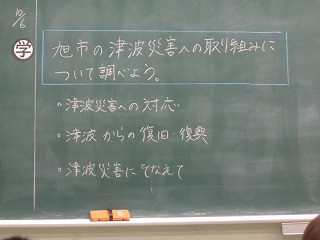 10/6
学
旭市の津波災害への取り組みに
ついて調べよう。
・津波災害への対応
・津波からの復旧・復興
・津波災害にそなえて